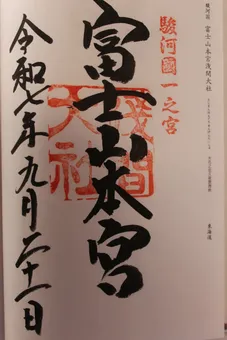 駿河国 富士山本宮浅間大社
東海道
駿河國一之宮
富士山本宮
浅間大社
令和七年九月二十一日